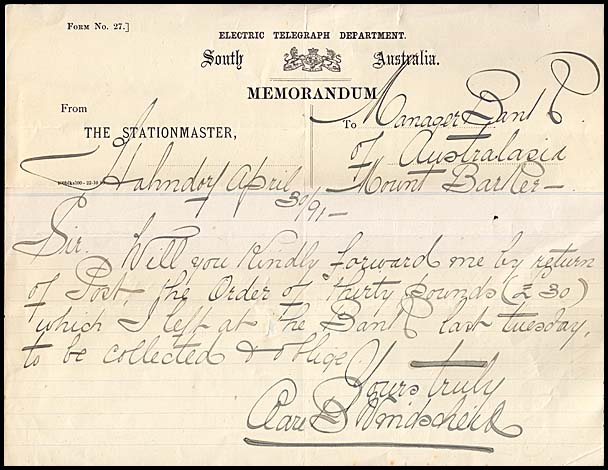 Form No. 27.]
ELECTRIC TELEGRAPH DEPARTMENT.
South Australia.
MEMORANDUM
From
THE STATIONMASTER,
To Manager Bank
of Australasia
Mount Barker
Hahndorf April 30/91
Sir. Will you kindly forward me by return
of Post, the Order of thirty pounds (£30)
which I left at the Bank last tuesday,
to be collected & oblige
Yours truly